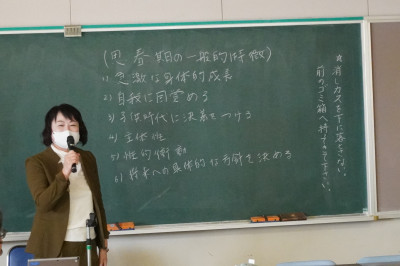 (思春期の一般的特徴)
1) 急激な身体的成長
2) 自我に目覚める
3) 子供時代に決着をつける
4) 主体性
5) 性的衝動
6) 将来への具体的な方針を決める
消しカスを下に落さない。
前のゴミ箱へ持
下さい。